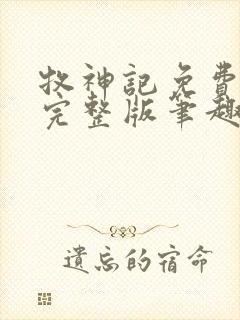 牧神記免費
完整版筆趣
遺忘的宿命